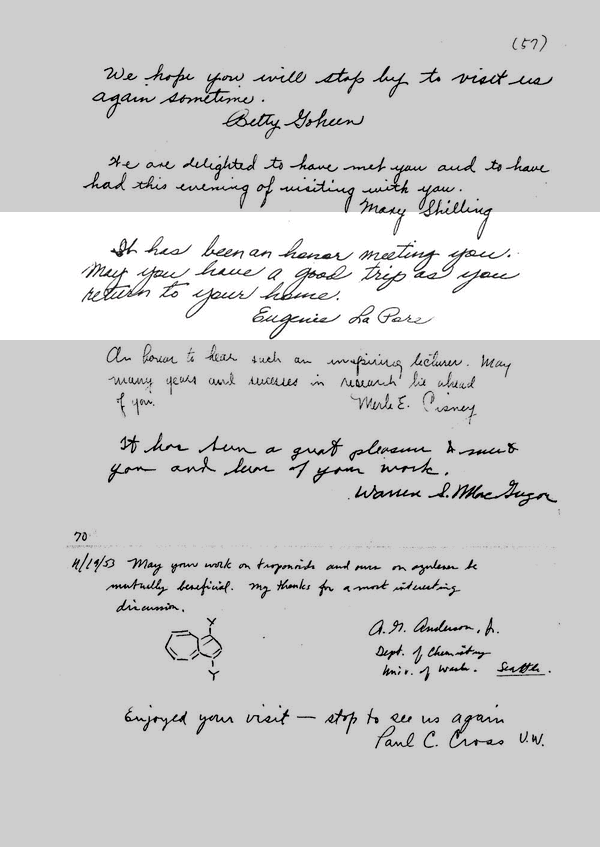 (57)
We hope you will stop by to visit us
again sometime.
Betty Goheen
We are delighted to have met you and to have
had this evening of visiting with you.
Mary Shilling
It has been an honor meeting you.
May you have a good trip as you
return to your home.
Eugenie La Pore
An honor to hear such an inspiring lecturer. May
many years and successes in research lie ahead
of you.
Merle E. Cisney
It has been a great pleasure to meet
you and hear of your work.
Warren S. MacGregor
70
11/19/53 May your work on troponoids and ours on azulenes be
mutually beneficial. My thanks for a most interesting
discussion.
Y
A. G. Anderson, Jr.
Dept. of Chemistry
Univ. of Wash. Seattle.
Y
Enjoyed your visit — stop to see us again
Paul C. Cross U.W.